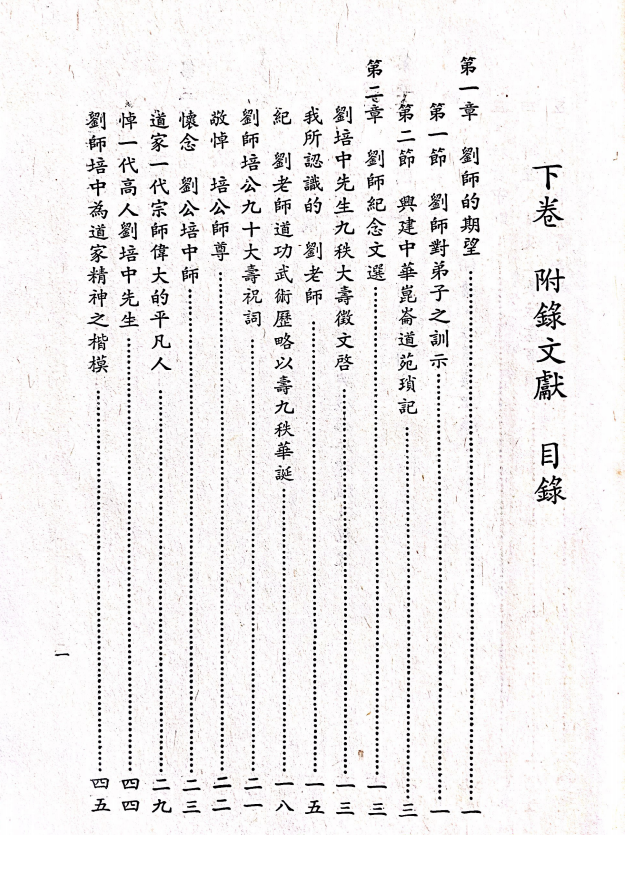 下卷　附錄文獻　目錄
第一章　劉師的期望⋯⋯⋯⋯一
第一節　劉師對弟子之訓示⋯⋯⋯⋯一
第二節　興建中華崑崙道苑瑣記⋯⋯⋯⋯三
第二章　劉師紀念文選⋯⋯⋯⋯一三
劉培中先生九秩大壽徵文啓⋯⋯⋯⋯一三
我所認識的　劉老師⋯⋯⋯⋯一五
紀　劉老師道功武術歷略以壽九秩華誕⋯⋯⋯⋯一八
劉師培公九十大壽祝詞⋯⋯⋯⋯二一
敬悼　培公師尊⋯⋯⋯⋯二二
懷念　劉公培中師⋯⋯⋯⋯二三
道家一代宗師偉大的平凡人⋯⋯⋯⋯二九
悼一代高人劉培中先生⋯⋯⋯⋯四四
劉師培中為道家精神之楷模⋯⋯⋯⋯四五
一